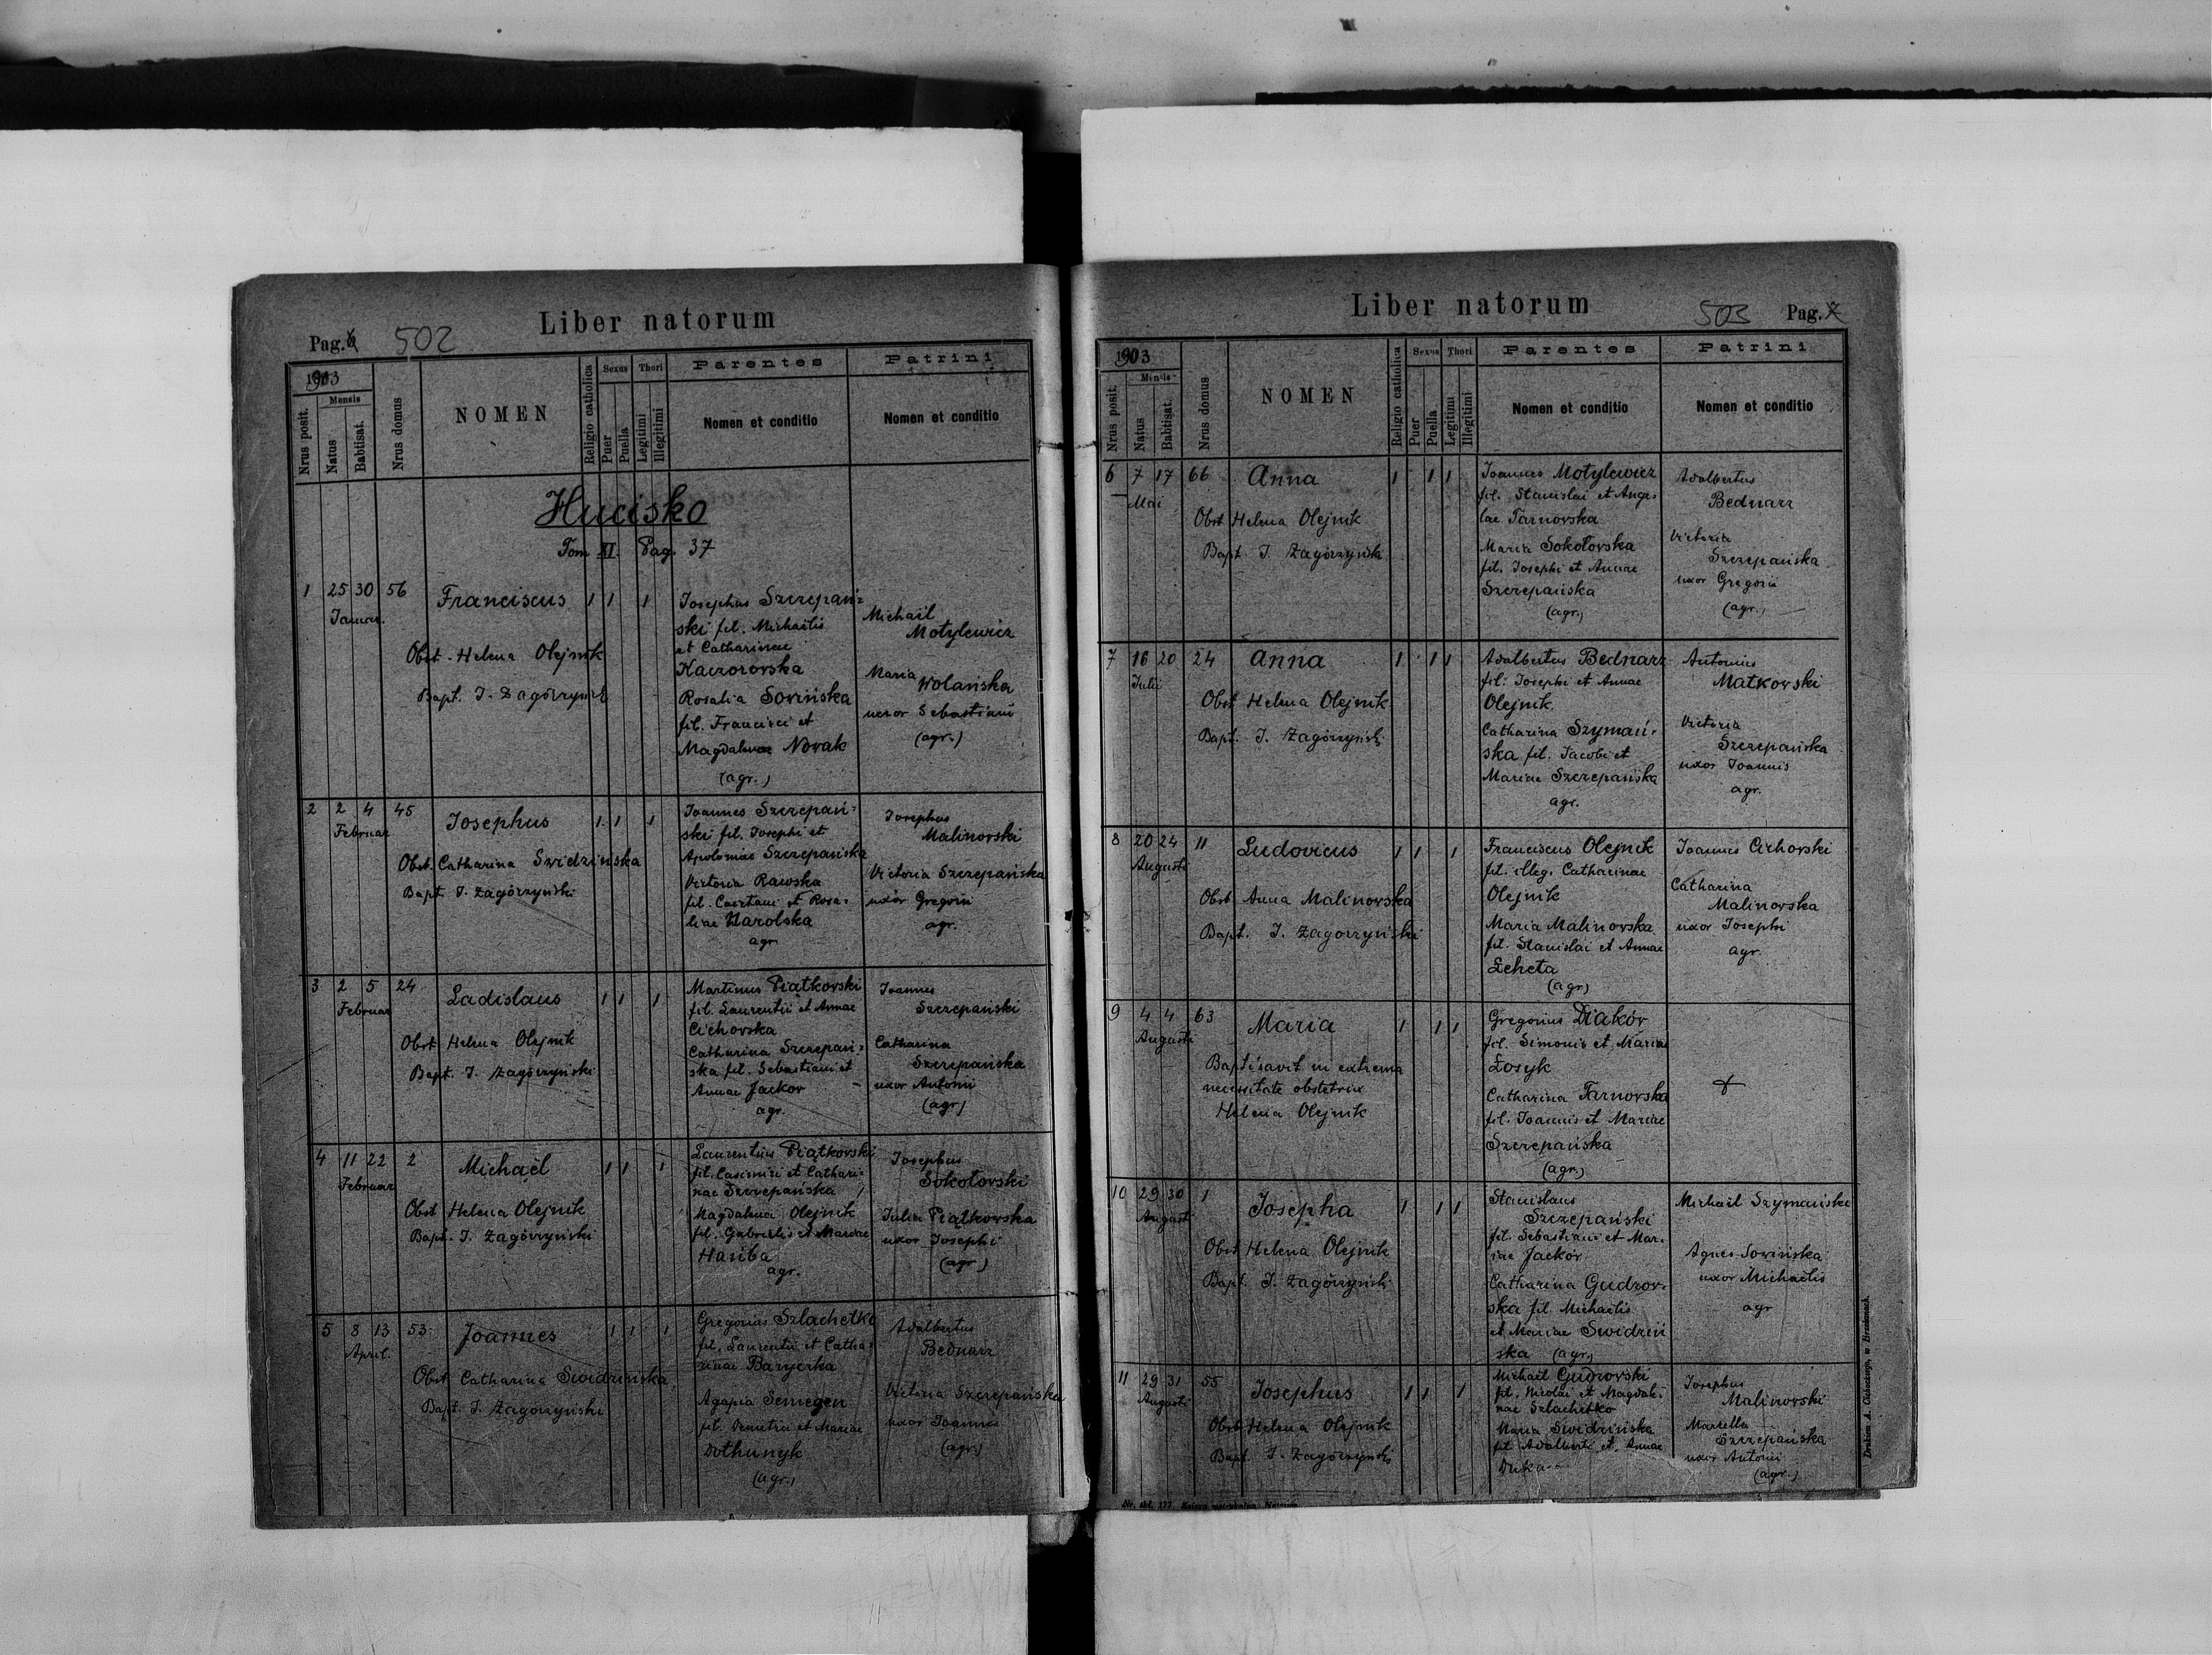 Liber natorum
Pag. 502
1903
Nrus posit.
Mensis
Natus
Babtisat.
Nrus domus
NOMEN
Religio catholica
Sexus
Puer
Puella
Thori
Legitimi
Illegitimi
Parentes
Nomen et conditio
Patrini
Nomen et conditio
Hucisko
Tom XI. Pag. 37
1 25 30 56 Franciscus 1 1 1
Januar.
Obst. Helena Olejnik
Bapt. J. Zagórzyński
Josephus Szczepań=
ski fil. Michaelis
et Catharinae
Kaczorovska
Rosalia Sovińska
fil. Francisci et
Magdalenae Novak
(agr.)
Michaël
Motylewicz
Maria
Wolańska
uxor Sebastiani
(agr.)
2 2 4 45 Josephus 1 1 1
Februar
Obst. Catharina Svidzińska
Bapt. J. Zagórzyński
Joannes Szczepań=
ski fil. Josephi et
Apoloniae Szczepańska
Victoria Rawska
fil. Caietani et Rosa=
liae Narolska
agr.
Josephus
Malinovski
Victoria Szczepańska
uxor Gregorii
agr.
3 2 5 24 Ladislaus 1 1 1
Februar
Obst Helena Olejnik
Bapt. J. Zagórzyński
Martinus Piątkovski
fil. Laurentii et Annae
Cichovska
Catharina Szczepań=
ska fil. Sebastiani et
Annae Jackov
agr.
Joannes
Szczepański
Catharina
Szczepańska
uxor Antonii
(agr)
4 11 22 2 Michaël 1 1 1
Februar
Obst Helena Olejnik
Bapt. J. Zagórzyński
Laurentius Piątkovski
fil. Casimiri et Cathari=
nae Szczepańska
Magdalena Olejnik
fil. Gabrielis et Mariae
Hariba
agr.
Josephus
Sokołovski
Julia Piątkovska
uxor Josephi
(agr)
5 8 13 53 Joannes 1 1 1
April.
Obst Catharina Svidzińska
Bapt. J. Zagórzyński
Gregorius Szlachetko
fil. Laurentii et Catha=
rinae Barycka
Agapia Semegen
fil. Demetrii et Mariae
Dothunyk
(agr.)
Adalbertus
Bednarz
Victoria Szczepańska
uxor Joannis
(agr.)
Liber natorum
503 Pag.
1903
Nrus posit.
Mensis
Natus
Babtisat.
Nrus domus
NOMEN
Religio catholica
Sexus
Puer
Puella
Thori
Legitimi
Illegitimi
Parentes
Nomen et conditio
Patrini
Nomen et conditio
6 7 17 66 Anna 1 1 1
Mai
Obst Helena Olejnik
Bapt. J. Zagórzyński
Joannes Motylewicz
fil. Stanislai et Ange=
lae Tarnovska
Maria Sokołovska
fil. Josephi et Annae
Szczepańska
(agr.)
Adalbertus
Bednarz
Victoria
Szczepańska
uxor Gregorii
(agr.)
7 16 20 24 Anna 1 1 1
Julii
Obst Helena Olejnik
Bapt. J. Zagórzyński
Adalbertus Bednarz
fil. Josephi et Annae
Olejnik
Catharina Szymań=
ska fil. Jacobi et
Mariae Szczepańska
agr.
Antonius
Matkovski
Victoria
Szczepańska
uxor Joannis
agr.
8 20 24 11 Ludovicus 1 1 1
Augusti
Obst Anna Malinovska
Bapt. J. Zagorzyński
Franciscus Olejnik
fil. illeg. Catharinae
Olejnik
Maria Malinovska
fil. Stanislai et Annae
Leheta
(agr)
Joannes Cichovski
Catharina
Malinovska
uxor Josephi
agr.
9 4 4 63 Maria 1 1 1
Augusti
Baptisavit in extrema
necessitate obstetrix
Helena Olejnik
Gregorius Diakóv
fil. Simonis et Mariae
Losyk
Catharina Tarnovska
fil. Joannis et Mariae
Szczepańska
(agr.)
10 29 30 1 Josepha 1 1 1
August
Obst Helena Olejnik
Bapt. J. Zagórzyński
Stanislaus
Szczepański
fil. Sebastiani et Mar=
iae Jackov
Catharina Gudzov=
ska fil. Michaelis
et Mariae Svidziń
ska (agr.)
Michaël Szymański
Agnes Sovińska
uxor Michaelis
agr
11 29 31 55 Josephus 1 1 1
Augusti
Obst Helena Olejnik
Bapt. J. Zagórzyński
Michaël Gudzovski
fil. Nicolai et Magdale=
nae Szlachetko
Maria Svidzińska
fil. Adalberti et Annae
Duka
Josephus
Malinovski
Marcella
Szczepańska
uxor Antonii
(agr.)